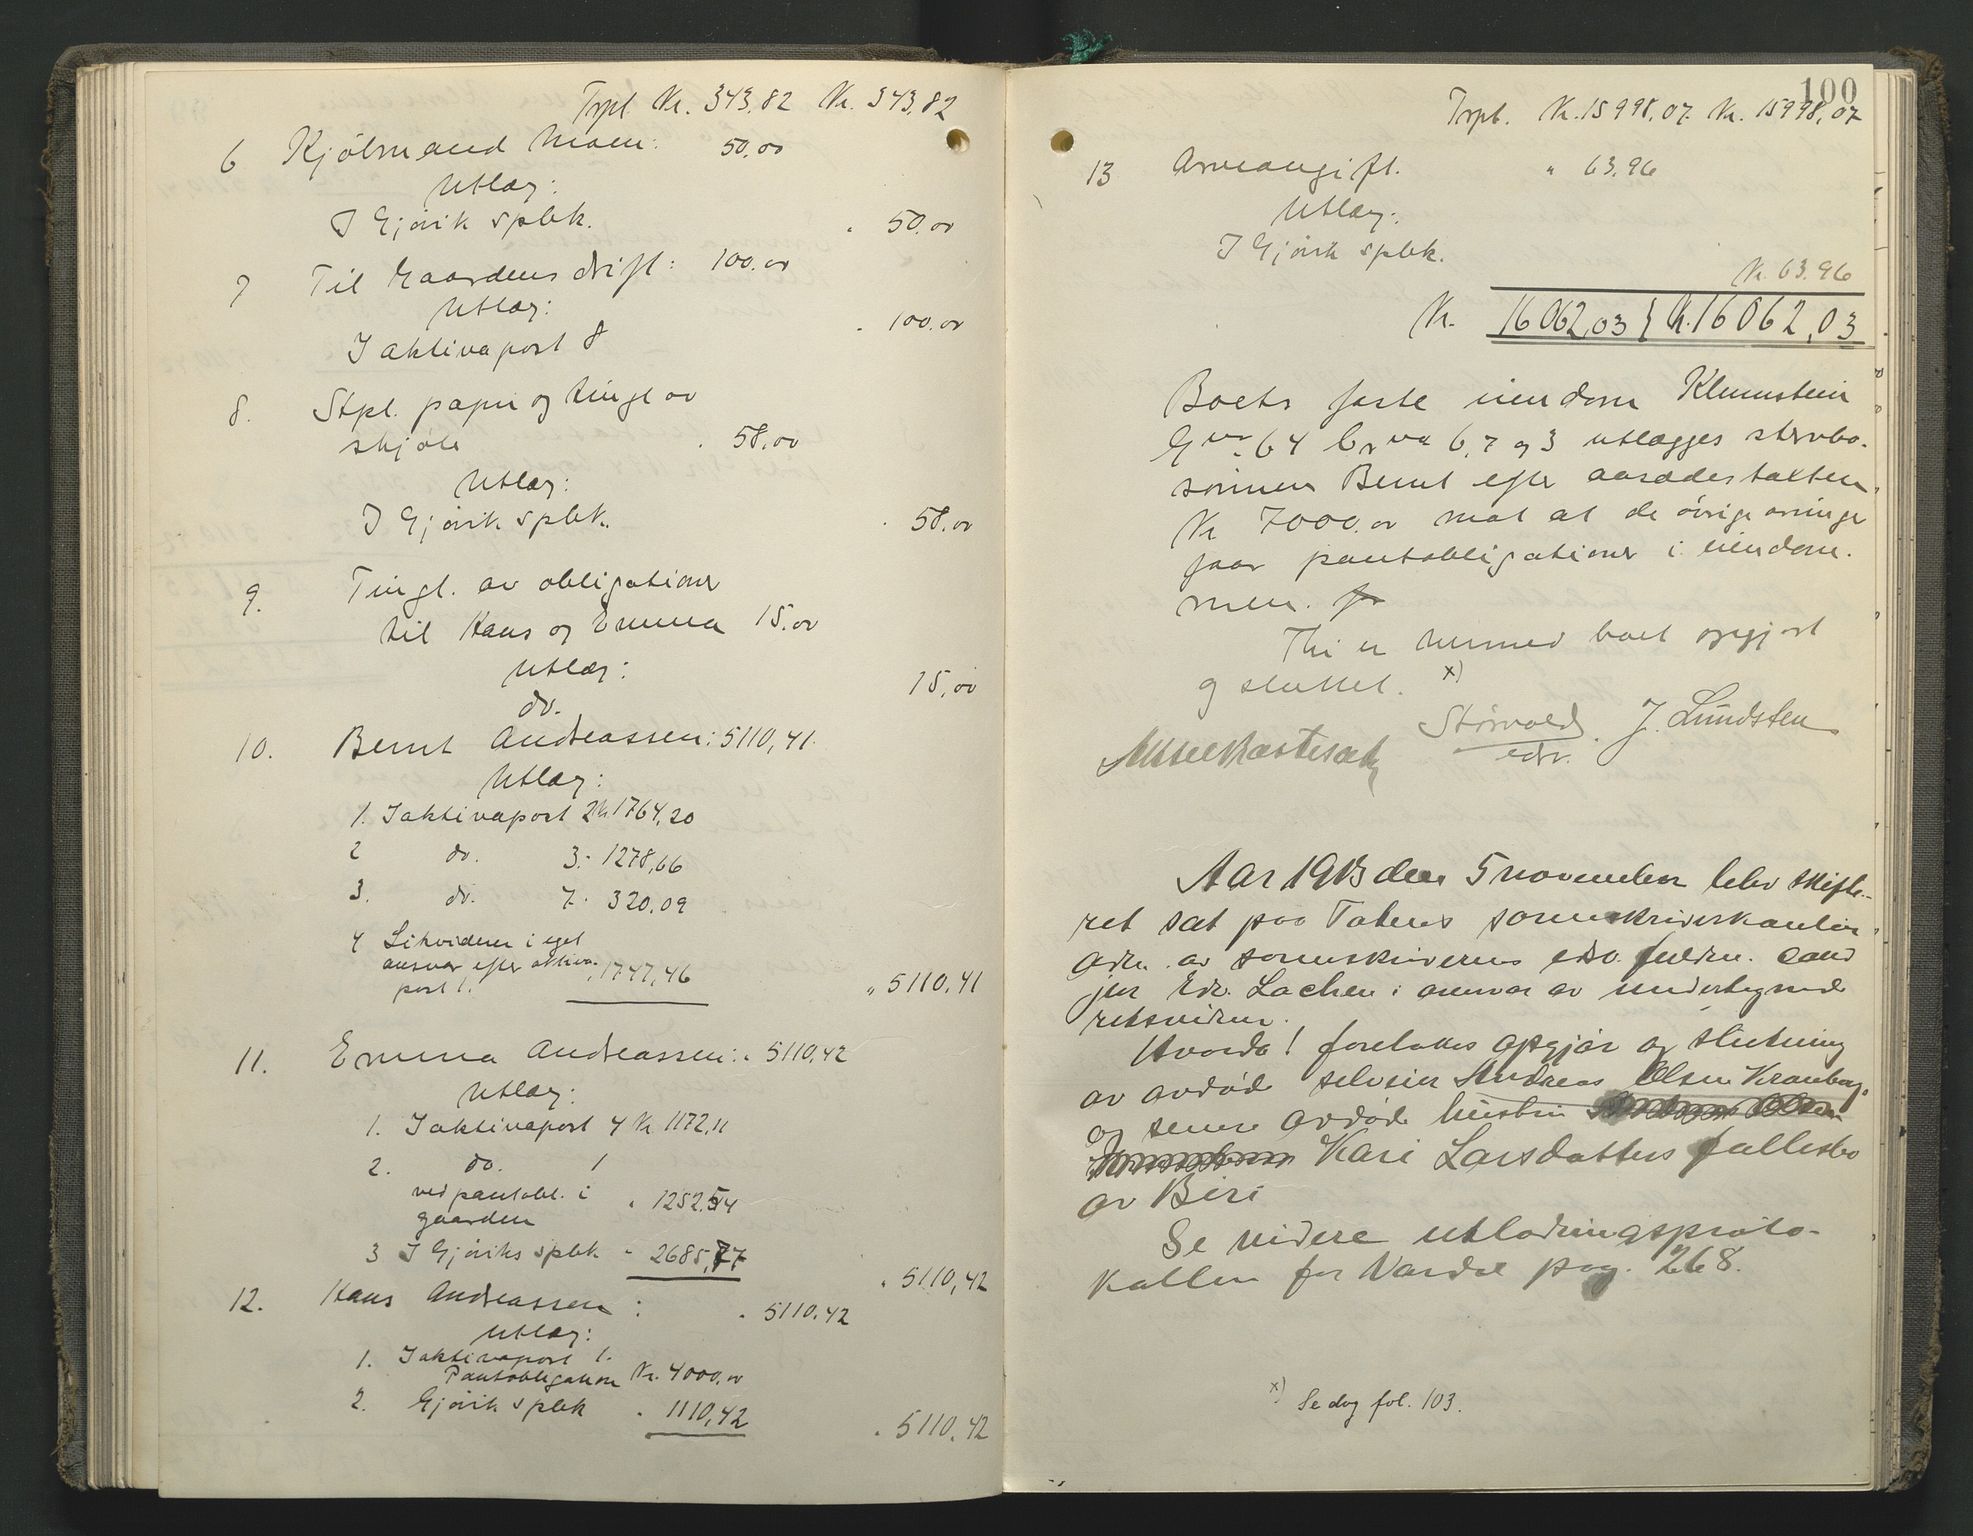 Trpt Kr. 343,82 Kr. 343,82
6 Kjölmand Moen: 50,00
Utlæg:
I Gjøvik spbk. " 50,00
7 Til Gaardens drift: 100,00
Utlæg:
I aktivapost 8 " 100,00
8. Stpl. papir og tingl av
skjøte " 58,00
Utlæg:
I Gjøvik spbk. " 58,00
9. Tingl. av obligationer
til Hans og Emma 15,00
Utlæg:
do. 15,00
10. Bernt Andreassen: 5110,41
Utlæg:
1. I aktivapost 2 Kr. 1764,20
2 do. 3 - 1278,66
3. do. 7 - 320,09
4 Likviderer i eget
ansvar efter aktiva-
post 1. " 1747,46 " 5110,41
11. Emma Andreassen: " 5110,42
Utlæg:
1. I aktivapost 4 Kr 1172,11
2. do. 1
ved pantobl. i
gaarden " 1252,54
3 I Gjøviks spbk - 2685,77
" 5110,42
12. Hans Andreassen: " 5110,42
Utlæg:
1. I aktivapost 1.
Pantobligation Kr. 4000,00
2. Gjøvik spbk " 1110,42
" 5110,42
100
Trpt. Kr. 15998,07 Kr. 15998,07
13 Arveavgift. " 63,96
Utlæg:
I Gjøvik spbk.
Kr. 63,96
Kr. 16062,03 } Kr. 16062,03
Boets faste eiendom Klunnstein
Gnr. 64 Brnr 6, 7 og 3 utlægges stervbo-
sønnen Bernt efter aasædestaksten
Kr 7000,00 mot at de øvrige arvinger
faar pantobligationer i eiendom-
men.
Thi er hermed boet opgjort
og sluttet. x)
Størvold J. Lundsten
edv.
Aar 1913 den 5 november blev skifte-
ret sat paa Totens sorenskriverkontor
adm. av sorenskriverens edsv. fuldm. cand
jur Edv. Lochen i overvær av undertegnede
retsvidner.
Hvorda! foretokes opgjør og slutning
av avdød selveier Andreas Olsen Kranberg
og senere avdøde hustru
Kari Larsdatters fællesbo
av Biri
Se videre utlodningsproto-
kollen for Vardal pag. 268.
x) Se dog fol. 103.